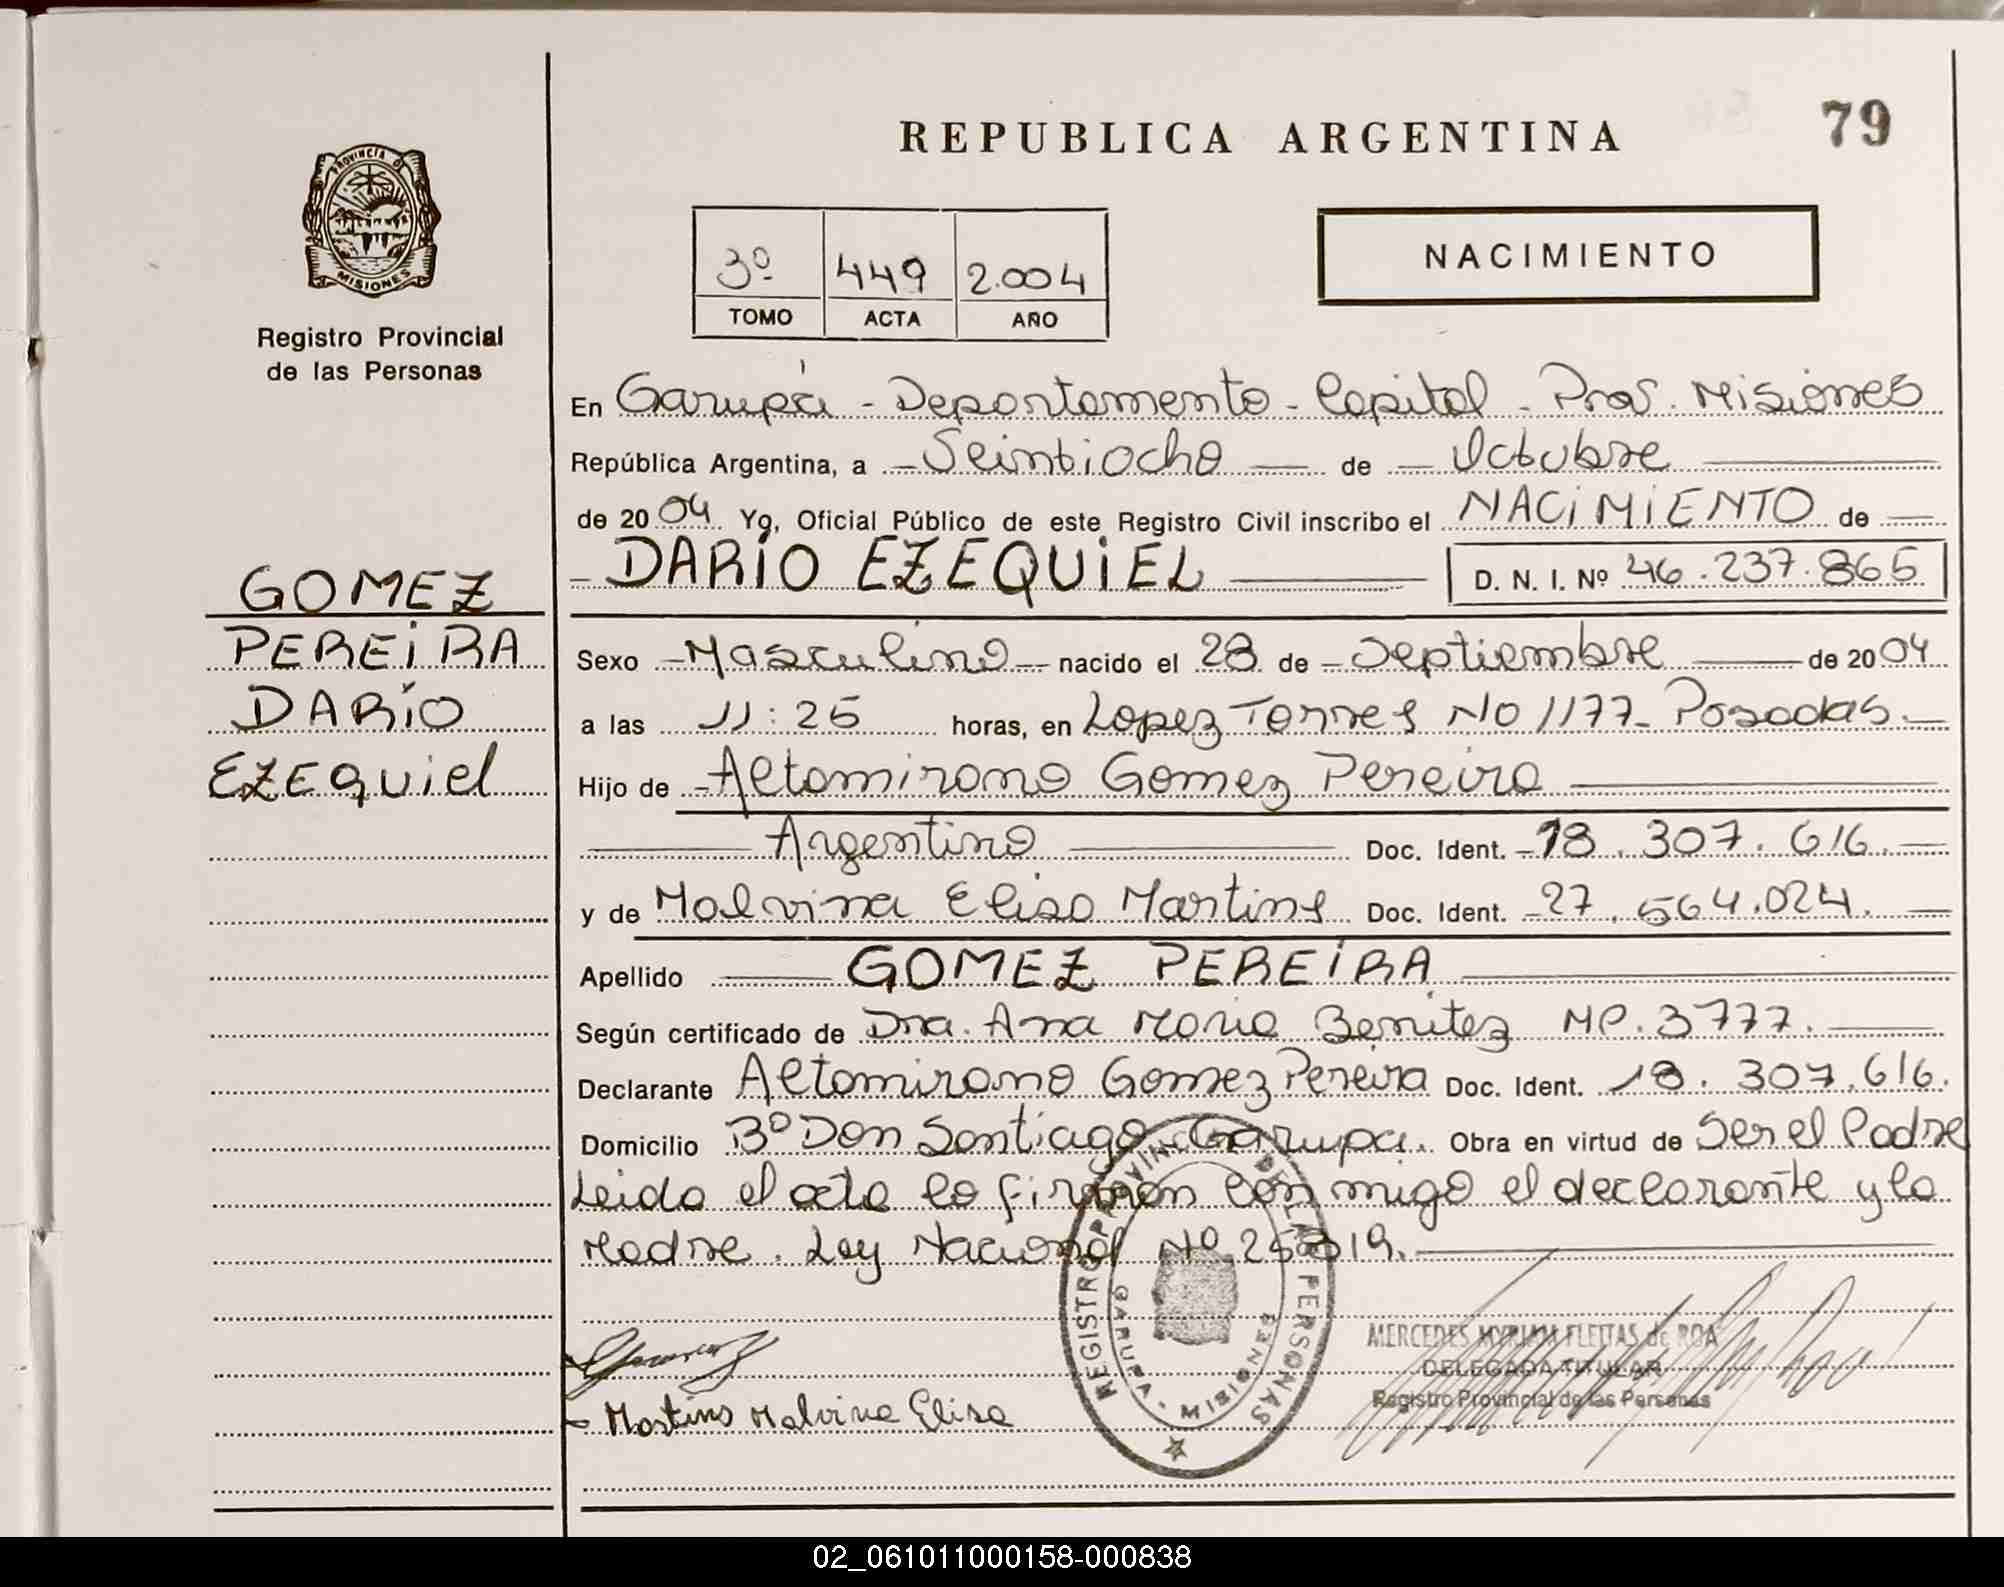 REPUBLICA ARGENTINA
79
PROVINCIA DE
MISIONES
Registro Provincial
de las Personas
3º 449 2.004
TOMO ACTA AÑO
NACIMIENTO
En Garupá - Departamento - Capital - Prov. Misiones
República Argentina, a - Veintiocho de - Octubre
de 2004 Yo, Oficial Público de este Registro Civil inscribo el NACIMIENTO de
- DARÍO EZEQUIEL D. N. I. Nº 46.237.865
GOMEZ
PEREIRA
DARÍO
EZEQUiel
Sexo - Masculino - nacido el 28 de - Septiembre de 2004
a las 11:25 horas, en Lopez Torres No 1177 - Posadas. -
Hijo de - Altamirano Gomez Pereira
Argentino Doc. Ident. - 18.307.616. -
y de Malvina Elisa Martins Doc. Ident. - 27.564.024. -
Apellido GOMEZ PEREIRA
Según certificado de Dra. Ana Maria Benitez MP. 3777.
Declarante Altamirano Gomez Pereira Doc. Ident. 18.307.616.
Domicilio Bº Don Santiago - Garupa. Obra en virtud de Ser el Padre
Leida el acta la firman con migo el declarante y la
Madre. Ley Nacional Nº 25819.
REGISTRO PROVINCIAL DE LAS PERSONAS
GARUPA - MISIONES
MERCEDES MYRIAM FLEITAS de ROA
DELEGADA TITULAR
Registro Provincial de las Personas
Martins Malvina Elisa
02_061011000158-000838